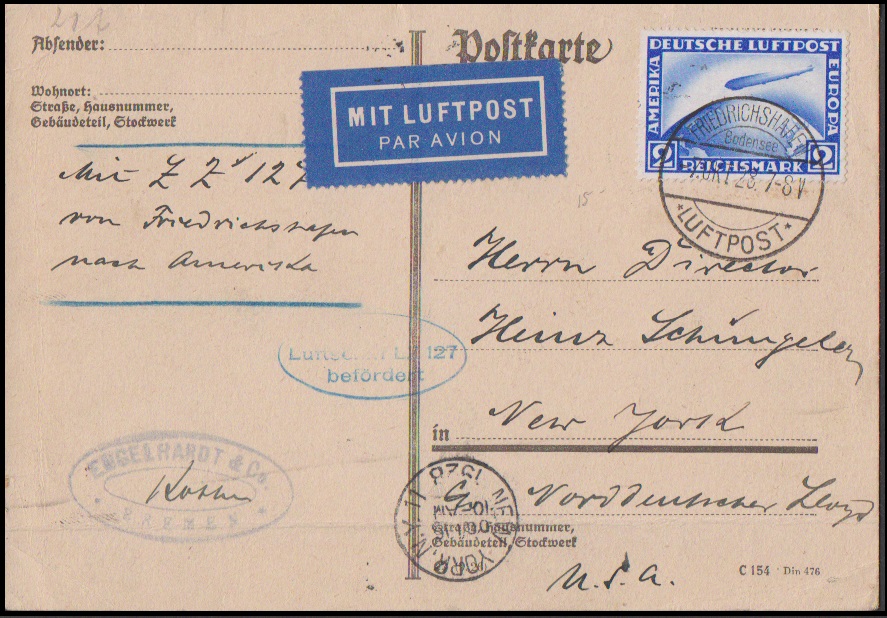 Absender:
Postkarte
Wohnort:
Straße, Hausnummer,
Gebäudeteil, Stockwerk
MIT LUFTPOST
PAR AVION
DEUTSCHE LUFTPOST
AMERIKA
EUROPA
2 REICHSMARK 2
FRIEDRICHSHAFEN
Bodensee
OKT 28. 7-8V
*LUFTPOST*
Mit L Z 127
von Friedrichshafen
nach Amerika
Herrn Director
Heinz Schüngeler
Luftschiff LZ 127
befördert
in New York
ENGELHARDT & Co.
BREMEN
NEW YORK, N.Y. 11
1928
10 AM
Norddeutscher Lloyd
Straße, Hausnummer,
Gebäudeteil, Stockwerk
U.S.A.
C 154 Din 476